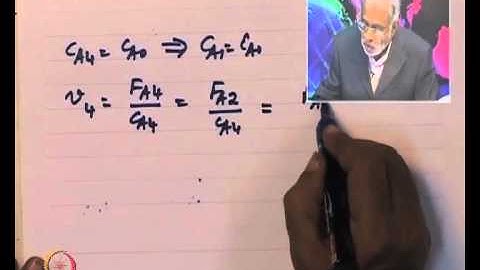 C_A4 = C_A0 ⇒ C_A1 = C_A0
v_4 = F_A4 / C_A4 = F_A2 / C_A4 =